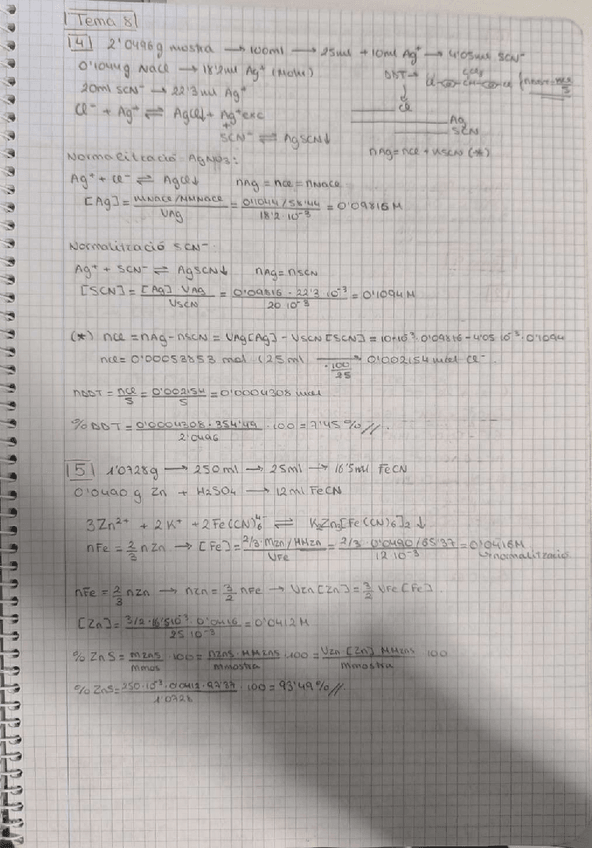 Tema 8
4 2'0496g mostra → 100ml → 25ml + 10ml Ag⁺ → 4'05ml SCN⁻
0'1044g NaCl → 18'2ml Ag⁺ (NaCl)
DDT →
20ml SCN⁻ → 22'3ml Ag⁺
Cl⁻ + Ag⁺ ⇌ AgCl↓ + Ag⁺exc
+
SCN⁻ ⇌ AgSCN↓
Cl
Ag
SCN
nAg = nCl + nSCN (*)
Normalització AgNO3:
Ag⁺ + Cl⁻ ⇌ AgCl↓ nAg = nCl = nNaCl
[Ag] = mNaCl/MMNaCl / VAg = 0'1044/58'44 / 18'2·10⁻³ = 0'09816 M
Normalització SCN⁻:
Ag⁺ + SCN⁻ ⇌ AgSCN↓ nAg = nSCN
[SCN] = [Ag]·VAg / VSCN = 0'09816 · 22'2·10⁻³ / 20·10⁻³ = 0'1094 M
(*) nCl = nAg - nSCN = VAg[Ag] - VSCN[SCN] = 10·10⁻³·0'09816 - 4'05·10⁻³·0'1094
nCl = 0'00053853 mol (25ml → ·100/25 0'002154 mol Cl⁻
nDDT = nCl/5 = 0'002154/5 = 0'0004308 mol
% DDT = 0'0004308·354'49 / 2'0496 · 100 = 7'45 % //
5 1'0728g → 250ml → 25ml → 16'5ml FeCN
0'0490 g Zn + H₂SO₄ → 12ml FeCN
3Zn²⁺ + 2K⁺ + 2Fe(CN)₆⁴⁻ ⇌ K₂Zn₃[Fe(CN)₆]₂ ↓
nFe = 2/3 nZn → [Fe] = 2/3·mZn/MMZn / VFe = 2/3 · 0'0490/65'37 / 12·10⁻³ = 0'0416 M
↳ normalització
nFe = 2/3 nZn → nZn = 3/2 nFe → VZn[Zn] = 3/2 VFe[Fe]
[Zn] = 3/2·16'5·10⁻³·0'0416 / 25·10⁻³ = 0'0412 M
% ZnS = mZnS/mmos · 100 = nZnS·MMZnS / mmostra · 100 = VZn·[Zn]·MMZnS / mmostra · 100
% ZnS = 250·10⁻³·0'0412·97'37 / 1'0728 · 100 = 93'49 % //